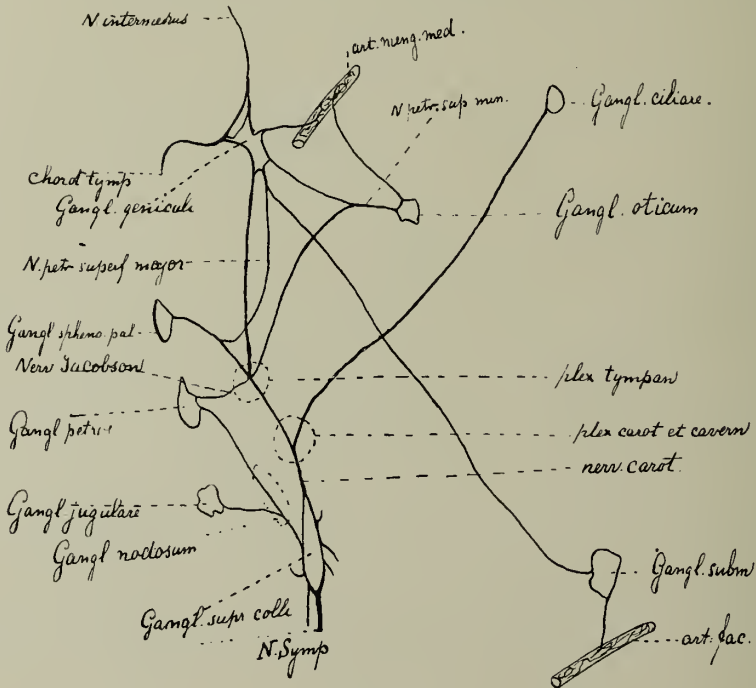 N intermedius
art. meng. med.
N. petr. sup min.
Gangl. ciliare.
chord tymp
Gangl. geniculi
Gangl. oticum
N. petr superf major
Gangl spheno. pal.
Nerv Jacobson
plex tympan
Gangl petros
plex carot et cavern
nerv. carot.
Gangl jugulare
Gangl nodosum
Gangl. subm
Gangl. supr colli
art. fac.
N. Symp